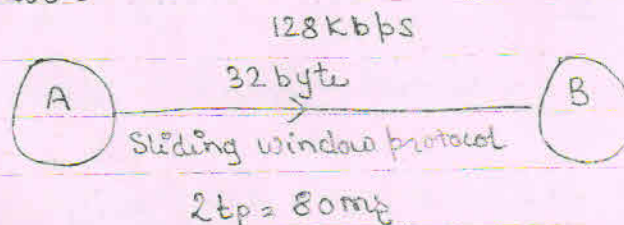 128 Kbps
32 byte
A
B
Sliding window protocol
2tp = 80ms